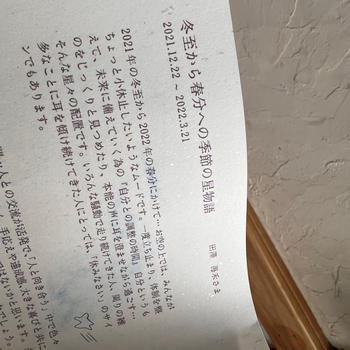 冬至から春分への季節の星物語
2021.12.22 ～ 2022.3.21
出澤
さま
2021年の冬至から2022年の春分にかけて…お空の上では、みんなが
ちょっと小休止したいようなムードです。一度立ち止まり、体制を整
えて、未来に備えていく為の『自分との調整の時間』。自分というも
のをじっくりと見つめたり、本能の声に耳を澄ませながら過ごす…
そんな星々の配置です。いろんな騒動で走り続けてきた人、周りの様
多なことに耳を傾け続けてきた人にとっては、「休みなさい」のサイ
ンでもあります。
人との交流が活発で、「人と向き合う」中で色々
手応えや達成感、大きな喜びと共に
はないかと思います。
でしょう。